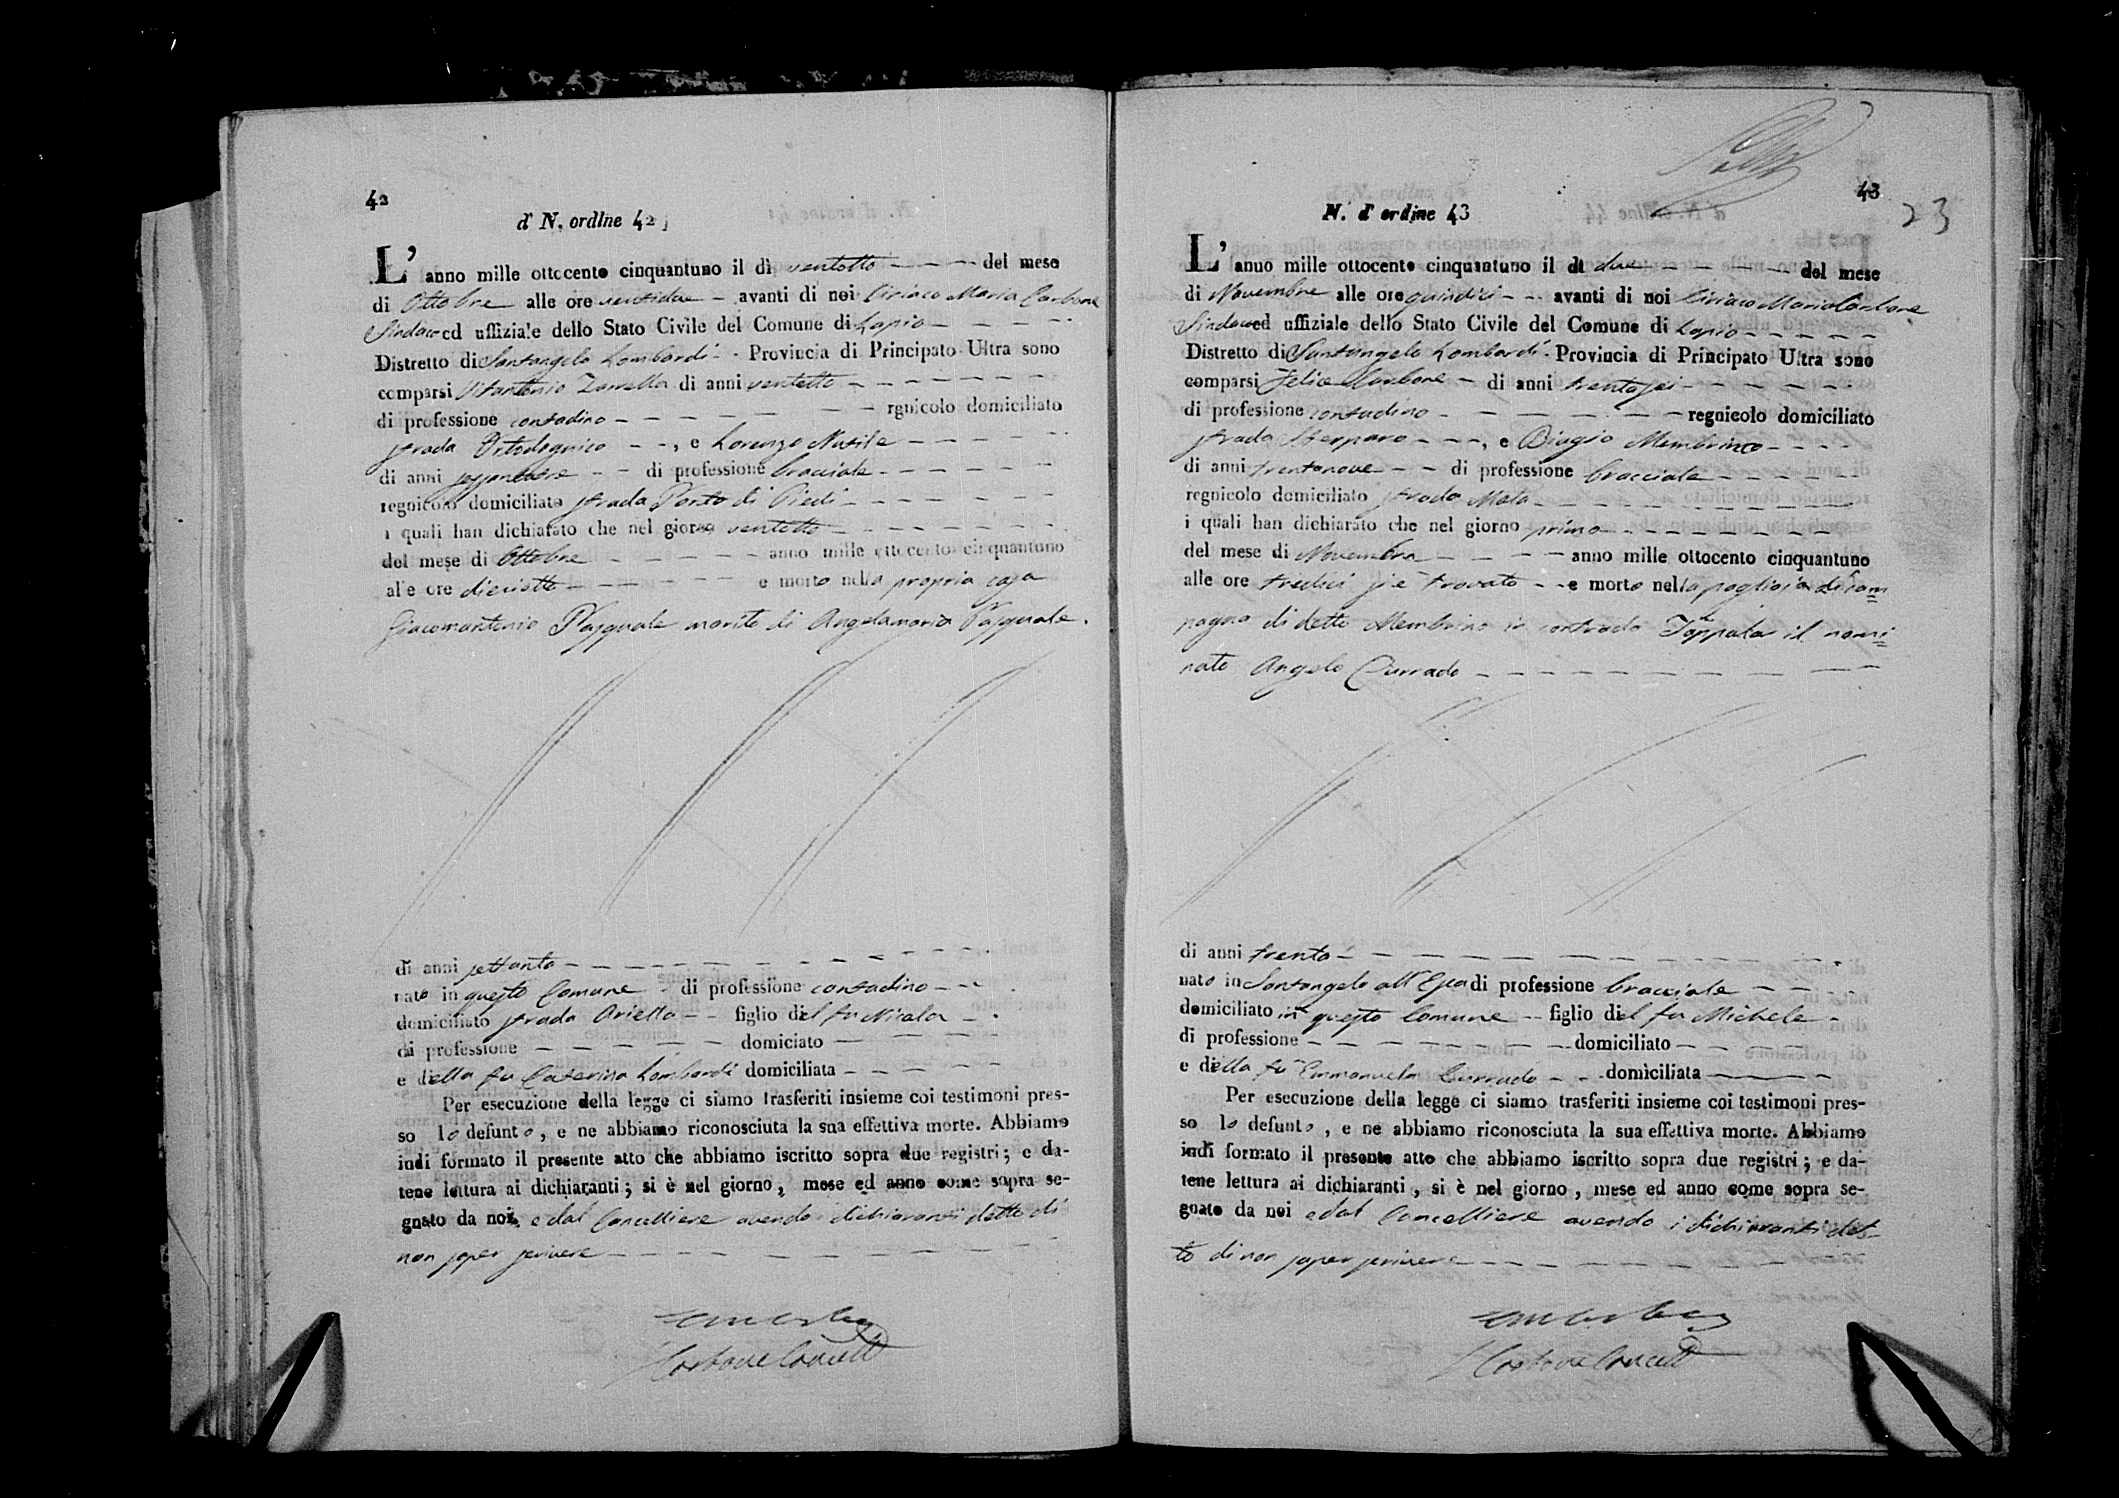 42
d' N. ordine 42
L' anno mille ottocento cinquantuno il dì ventotto del mese
di Ottobre alle ore ventidue avanti di noi Ciriaco Maria Carbone
Sindaco ed uffiziale dello Stato Civile del Comune di Lapio
Distretto di Santangelo Lombardi Provincia di Principato Ultra sono
comparsi Vitantonio Zarrella di anni ventotto
di professione contadino rgnicolo domiciliato
strada, e Lorenzo
di anni di professione bracciale
regnicolo domiciliato strada Ponto di Piedi
i quali han dichiarato che nel giorno ventotto
del mese di Ottobre anno mille ottocento cinquantuno
alle ore dieciotto e morto nella propria casa
Giacomantonio Pasquale marito di Angelamaria Pasquale.
di anni settanta
nato in questo Comune di professione contadino
domiciliato strada Ariella figlio del fu Nicola
di professione domiciato
e della fu Caterina Lombardi domiciliata
Per esecuzione della legge ci siamo trasferiti insieme coi testimoni pres-
so lo defunto, e ne abbiamo riconosciuta la sua effettiva morte. Abbiamo
indi formato il presente atto che abbiamo iscritto sopra due registri; e da-
tene lettura ai dichiaranti; si è nel giorno, mese ed anno come sopra se-
gnato da noi, e dal Cancelliere avendo i dichiaranti detto di
non saper scrivere
43
23
N. d' ordine 43
L' anno mille ottocento cinquantuno il dì due del mese
di Novembre alle ore quindici avanti di noi Ciriaco Maria Carbone
Sindaco ed uffiziale dello Stato Civile del Comune di Lapio
Distretto di Santangelo Lombardi Provincia di Principato Ultra sono
comparsi Felice Carbone di anni trentasei
di professione contadino regnicolo domiciliato
strada Sterparo, e Biagio Membrino
di anni trentanove di professione bracciale
regnicolo domiciliato strada Mala
i quali han dichiarato che nel giorno primo
del mese di Novembre anno mille ottocento cinquantuno
alle ore tredici si è trovato e morto nella pagliaja di cam=
pagna di detto Membrino in contrada Toppola il nomi=
nato Angelo Currado
di anni trenta
nato in Santangelo all'Esca di professione bracciale
domiciliato in questo Comune figlio del fu Michele
di professione domiciliato
e della fu Emmanuela Currado domiciliata
Per esecuzione della legge ci siamo trasferiti insieme coi testimoni pres-
so lo defunto, e ne abbiamo riconosciuta la sua effettiva morte. Abbiamo
indi formato il presente atto che abbiamo iscritto sopra due registri; e da-
tene lettura ai dichiaranti, si è nel giorno, mese ed anno come sopra se-
gnato da noi e dal Cancelliere avendo i dichiaranti det-
to di non saper scrivere